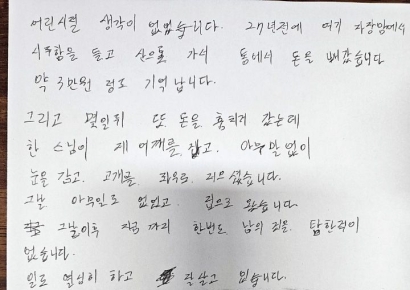 어린시절 생각이 없었습니다. 27년전에 여기 자장암에서
시주함을 들고 산으로 가서 통에서 돈을 빼갔습니다
약 3만원 정도 기억납니다.
그리고 몇일뒤 또 돈을 훔치러 갔는데
한 스님이 제 어깨를 잡고 아무말 없이
눈을 감고 고개를 좌우로 저으셨습니다.
그날 아무일도 없었고 집으로 왔습니다
그날이후 지금까지 한번도 남의 것을 탐한적이
없습니다.
일도 열심히 하고 잘살고 있습니다.